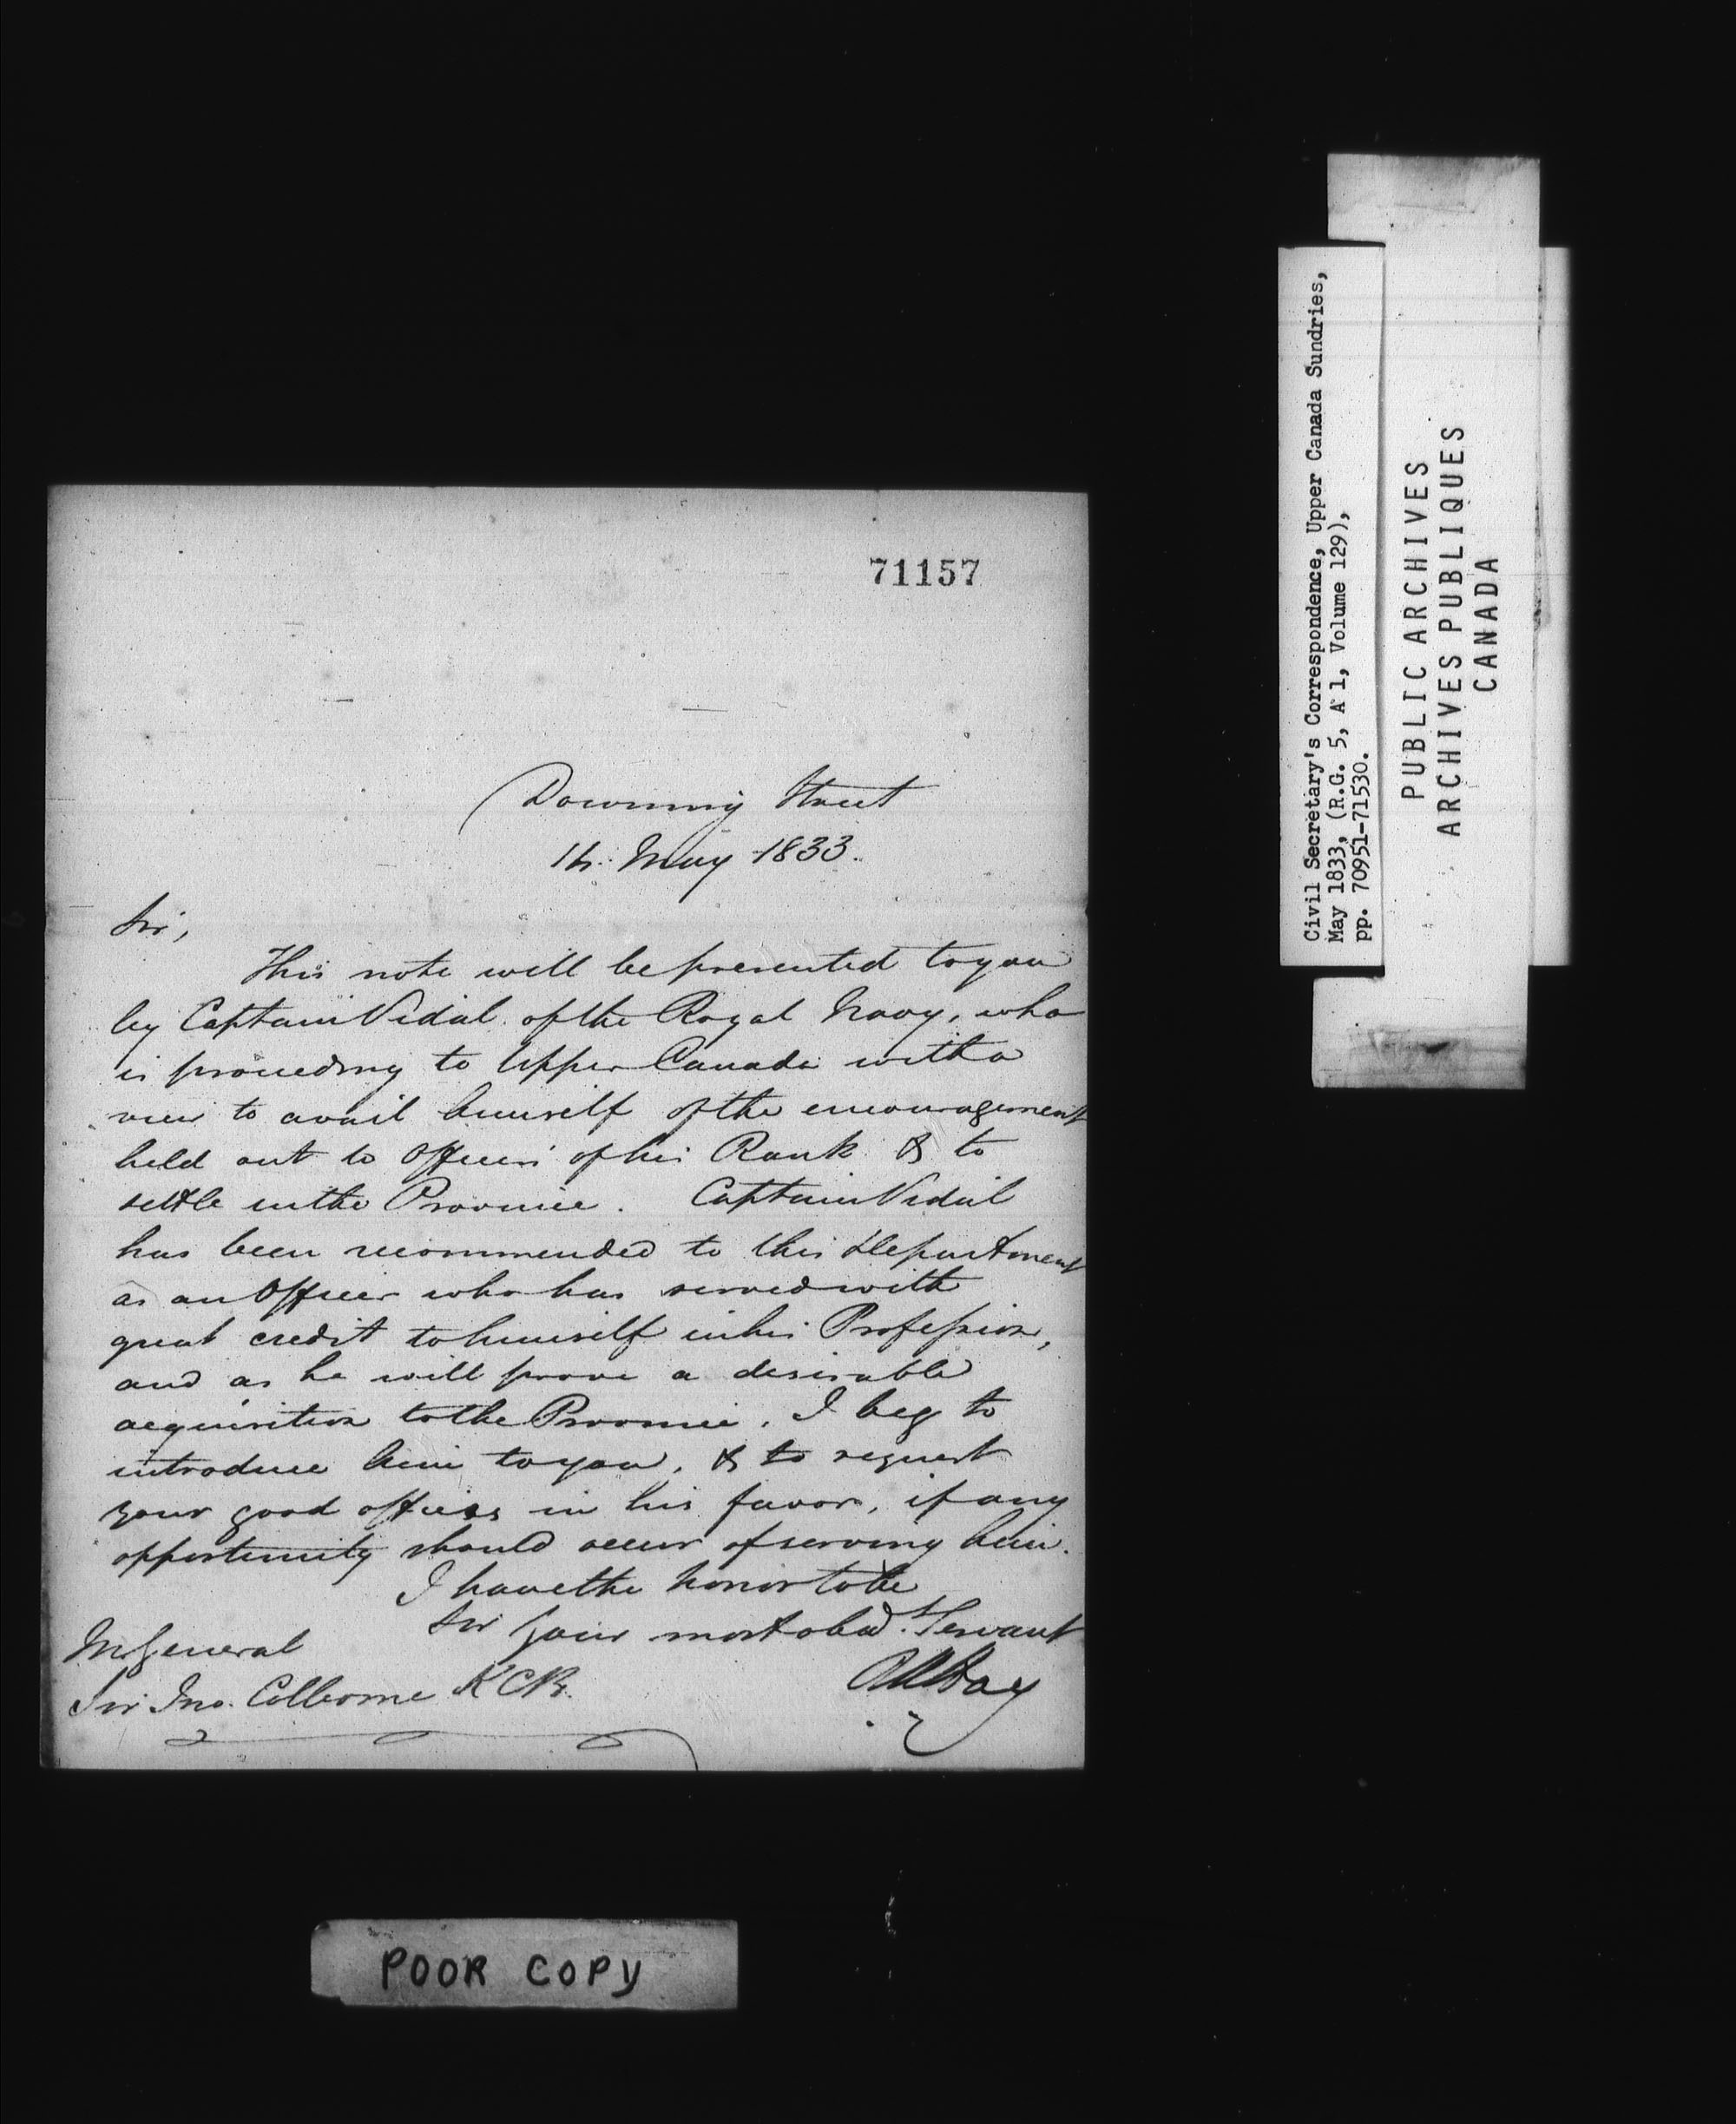 71157
Downing Street
14 May 1833.
Sir,
This note will be presented to you
by Captain Vidal of the Royal Navy, who
is proceeding to Upper Canada with a
view to avail himself of the encouragement
held out to Officers of his Rank & to
settle in the Province. Captain Vidal
has been recommended to this Department
as an Officer who has served with
great credit to himself in his Profession,
and as he will prove a desirable
acquisition to the Province, I beg to
introduce him to you, & to request
your good offices in his favor, if any
opportunity should occur of serving him.
I have the honor to be
Sir Your most obed. Servant
M General
Sir Jno. Colborne KCB.
RWHay
POOR COPY
Civil Secretary's Correspondence, Upper Canada Sundries,
May 1833, (R.G. 5, A 1, Volume 129),
pp. 70951-71530.
PUBLIC ARCHIVES
ARCHIVES PUBLIQUES
CANADA